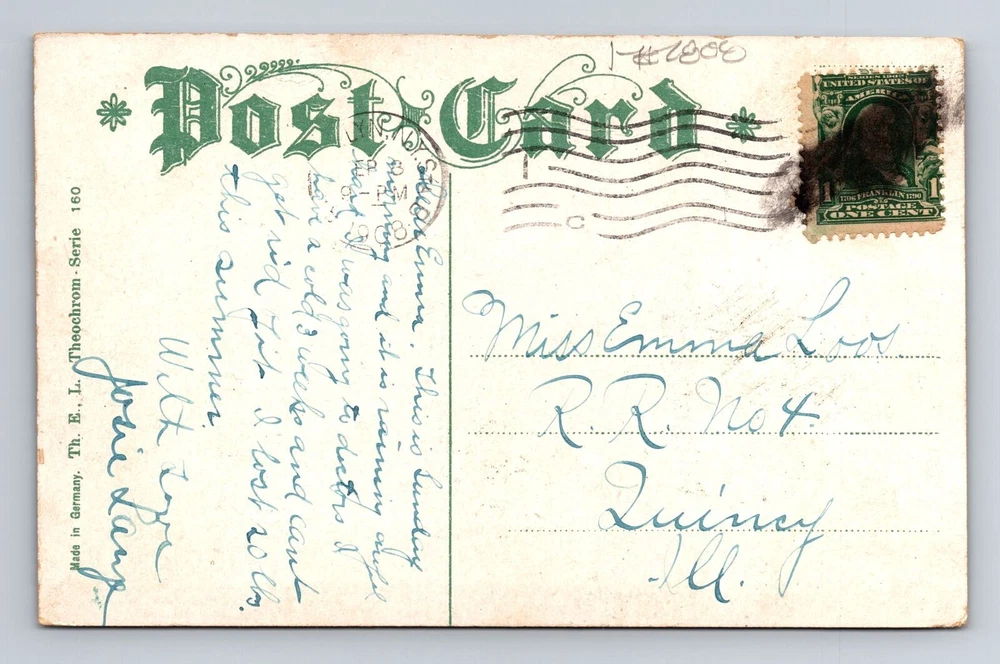 1-#1808
Post Card
SERIES 1902
UNITED STATES OF
AMERICA
1 1706 FRANKLIN 1790 1
POSTAGE
ONE CENT
8
9-PM
1908
C
Dear Emma. This is Sunday
morning and it is raining awful
hard I was going to doctors I
have a cold 3 weeks and cant
get rid of it I lost 20 lbs.
this summer.
With Love
Josie Lange
Miss Emma Loos.
R. R. No 4.
Quincy
Ill.
Made in Germany. Th. E., L. Theochrom-Serie 160